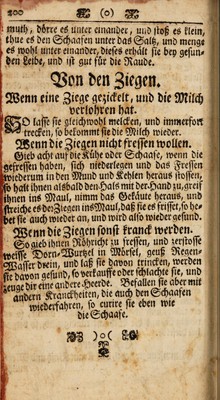 200 (o)
muth, dörre es unter einander, und stoß es klein,
thue es den Schaafen unter das Saltz, und menge
es wohl unter einander, dieses erhält sie bey gesun-
den Leibe, und ist gut für die Raude.
Von den Ziegen.
Wenn eine Ziege gezickelt, und die Milch
verlohren hat.
SO lasse sie gleichwohl melcken, und immerfort
trecken, so bekommt sie die Milch wieder.
Wenn die Ziegen nicht fressen wollen.
Gieb acht auf die Kühe oder Schaafe, wenn die
gefressen haben, sich niederlegen und das Fressen
wiederum in den Mund und Kehlen heraus stossen,
so halt ihnen alsbald den Hals mit der Hand zu, greif
ihnen ins Maul, nimm das Gekäute heraus, und
streiche es der Ziegen ins Maul, daß sie es frisset, so he-
bet sie auch wieder an, und wird also wieder gesund.
Wenn die Ziegen sonst kranck werden.
So gieb ihnen Röhricht zu fressen, und zerstosse
weisse Dorn-Wurtzel in Mörsel, geuß Regen-
Wasser drein, und laß sie davon trincken, werden
sie davon gesund, so verkauffe oder schlachte sie, und
zeuge dir eine andere Heerde. Befallen sie aber mit
andern Kranckheiten, die auch den Schaafen
wiederfahren, so curire sie eben wie
die Schaafe.
)o(